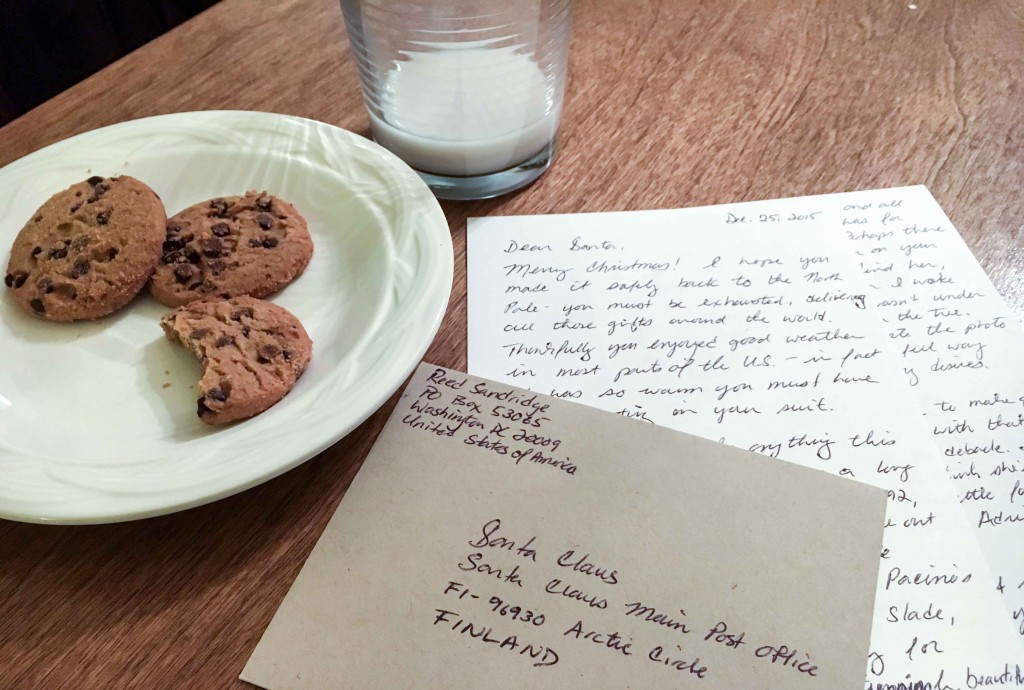 Dec. 25, 2015
Dear Santa,
Merry Christmas! I hope you
made it safely back to the North
Pole - you must be exhausted, delivering
all those gifts around the world.
Thankfully you enjoyed good weather
in most parts of the U.S. - in fact
was so warm you must have
on your suit.
anything this
a long
92,
out
Pacino's
Slade,
for
beautiful
and all
was for
Perhaps there
on your
and her,
I woke
wasn't under
the tree.
the photo
feel way
desires.
to make
with that
debacle.
she's
the
Reed Sandridge
PO Box 53065
Washington DC 20009
United States of America
Santa Claus
Santa Claus Main Post Office
FI-96930 Arctic Circle
FINLAND